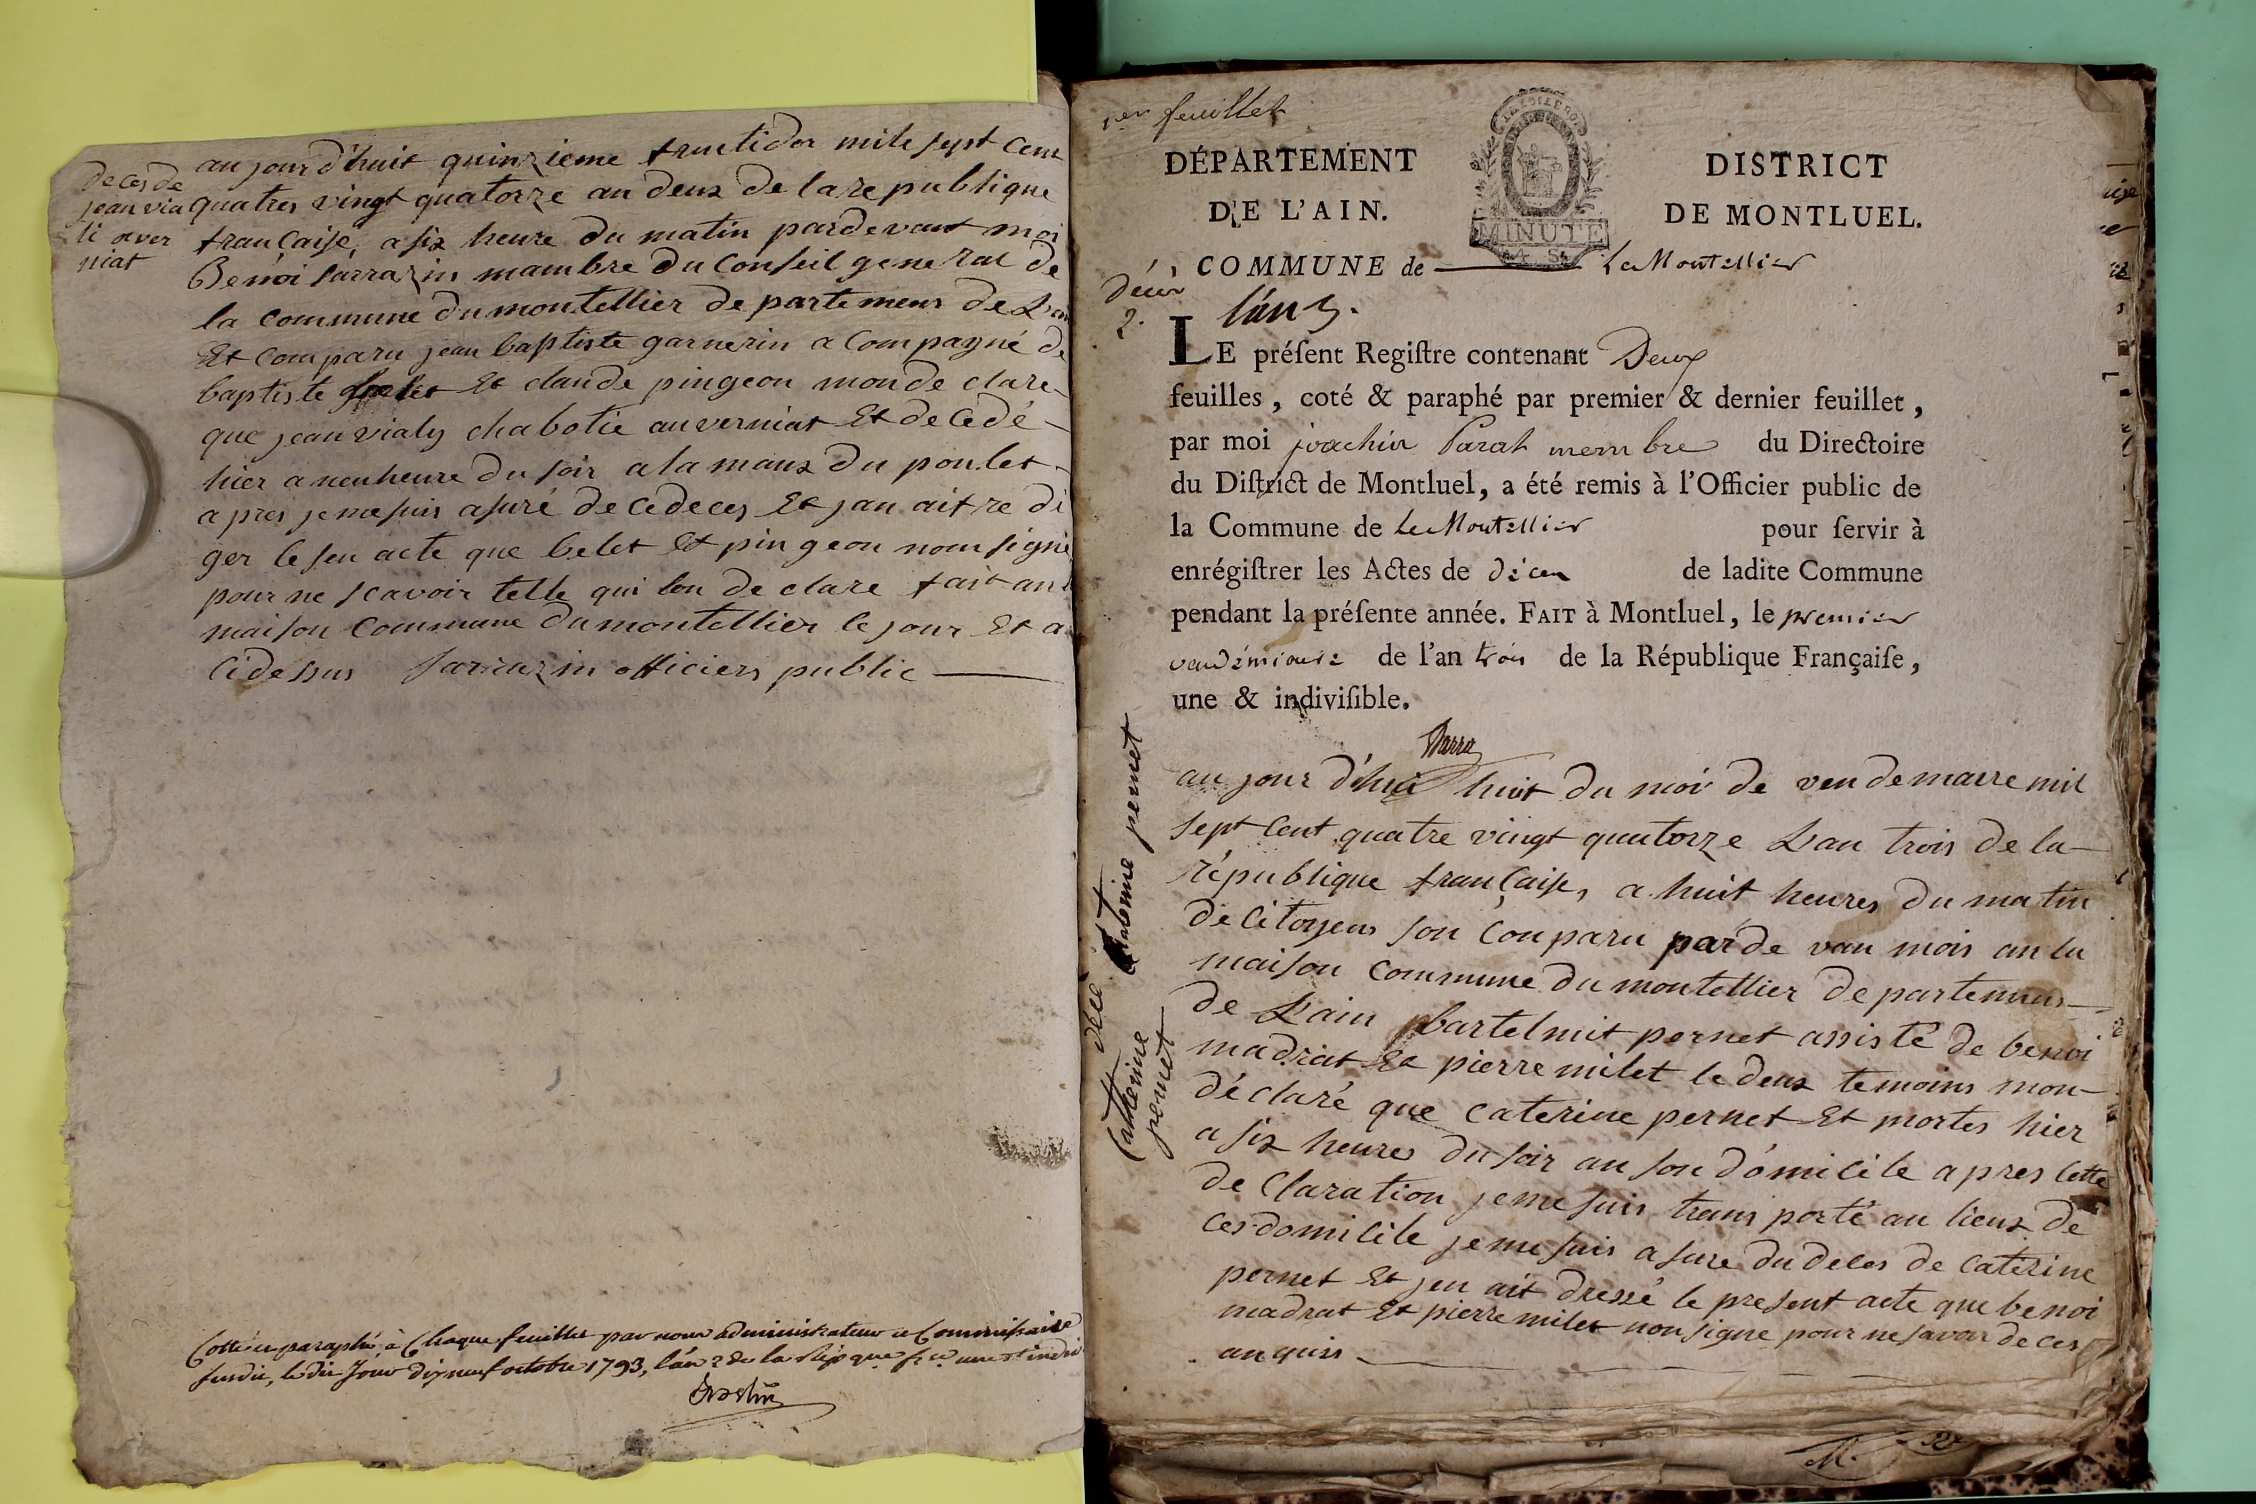 deces de
jean via
li aver
niat
au jour d'huit quinzieme fructidor mile sept cent
quatres vingt quatorze an deux de la republique
française, a six heure du matin pardevant moi
Benoi sarrazin mambre du Conseil general de
la commune du montellier departemens de L'ain
Et comparu jean baptiste garnerin a compagné de
baptiste Et claude pingeon mon de clare
que jean vialy chabotie auverniat Et de Cedé
hier a neu heure du soir a la maux du poulet
apres je me suis asuré de ce deces Et j'an ait re di
ger le seu acte que belet Et pingeon nom signé
pour ne scavoir telle qui lon de clare fait an l
maison commune du montellier le jour Et a
ci dessus sarrazin officiers public
Cotté et paraphé, à Chaque feuillet par nous administrateur et Commissaire
susdit, le dit Jour dix neuf octobre 1793, l'an 2 de la Rép que. fr.e une et indi
1er feuillet
DÉPARTEMENT
DE L'AIN.
DISTRICT
DE MONTLUEL.
MINUTE
4. S.
COMMUNE de Le Montellier
Décès
2.
l'an 3.
LE préſent Regiſtre contenant Deux
feuilles, coté & paraphé par premier & dernier feuillet,
par moi joachin Parat membre du Directoire
du Diſtrict de Montluel, a été remis à l'Officier public de
la Commune de Le Montellier pour ſervir à
enrégiſtrer les Actes de décès de ladite Commune
pendant la préſente année. FAIT à Montluel, le premier
vendémiaire de l'an trois de la République Françaiſe,
une & indiviſible.
décé Catherine pernet
Catherine
pernet
au jour d'hui huit du moi de vendemarre mil
sept cent quatre vingt quatorze L'an trois de la
république française, a huit heures du matin
de citoyens son conparu parde van mois an la
maison commune du montellier departemens
de L'ain bartelmit pernet assisté de benoi
madriat Et pierre milet le deux temoins mon
déclaré que caterine pernet Et mortes hier
a six heures du soir an son domicile apres cette
de claration je me suis transporté au lieux de
ces domicile je me suis asure du deces de caterine
pernet Et j'en ait dressé le present acte que benoi
madrat Et pierre milet non signe pour ne savoir de ces
anquis
M.